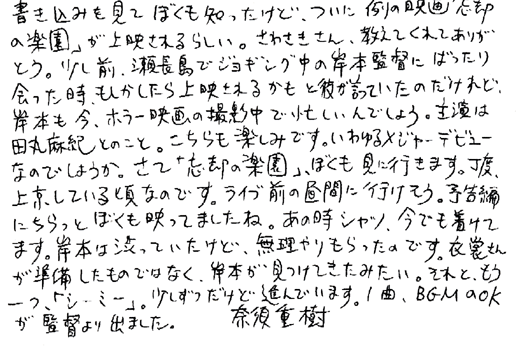 書き込みを見てぼくも知ったけど、ついに例の映画「忘却
の楽園」が上映されるらしい。さわさきさん、教えてくれてありが
とう。少し前、瀬長島でジョギング中の岸本監督にばったり
会った時、もしかしたら上映されるかもと彼が言っていたのだけれど、
岸本も今、ホラー映画の撮影中で忙しいんでしょう。主演は
田丸麻紀とのこと。こちらも楽しみです。いわゆるメジャーデビュー
なのでしょうか。さて「忘却の楽園」、ぼくも見に行きます。丁度、
上京している頃なのです。ライブ前の昼間に行けそう。予告編
にちらっとぼくも映ってましたね。あの時シャツ、今でも着けて
ます。岸本は渋っていたけど、無理やりもらったのです。衣裳さん
が準備したものではなく、岸本が見つけてきたみたい。それと、もう
一つ、「シーミー」。少しずつだけど進んでいます。1曲、BGMのOK
が監督より出ました。 奈須重樹